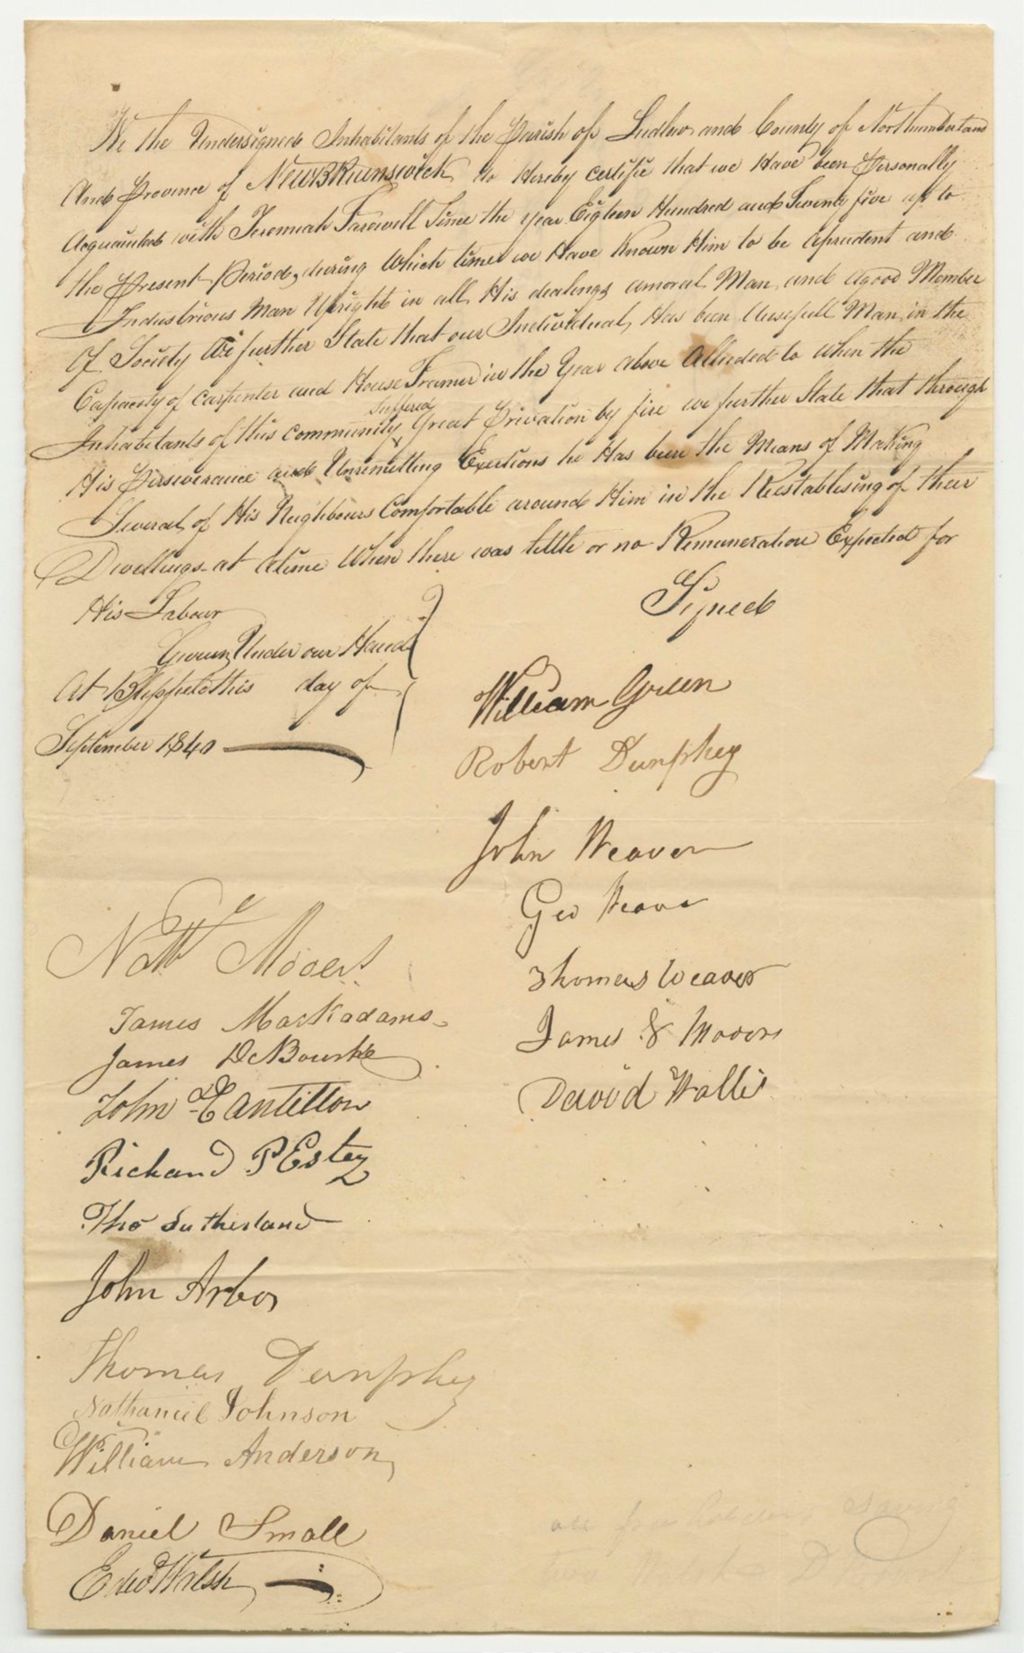 We the Undersigned Inhabitants of the Parish of Ludlow and County of Northumberland
And Province of New BRrunswick do Hereby certifie that we Have been Personally
Acquainted with Jeremiah Farewell Since the year Eighteen Hundred and Twenty five up to
the Present Period, during Which time we Have Known Him to be aprudent and
Industrious Man Upright in all His dealings amoral Man and agood Member
Of Society We further State that our Individual Has been Usefull Man in the
Capacity of Carpenter and House Framer in the Year above Alluded to when the
Inhabitants of this Community Suffered Great Privation by fire we further State that through
His Perseverance and Unremitting Exertions he Has been the Means of Making
Several of His Neighbours Comfortable around Him in the Reestablising of their
Dwellings at atime When there was little or no Remuneration Expected for
His Labour
Signed
Given Under our Hand
At this day of
September 1840
William Green
Robert Dunphey
John Weaver
Geo Weaver
Thomas Weaver
James S Mooers
David Wallis
Nathl Mooers
James MacKadams
James DeBourke
John Cantillon
Richard P Estey
Thos Sutherland
John Arbo
Thomas Dunphey
Nathaniel Johnson
William Anderson
Daniel Small
Edwd Walsh